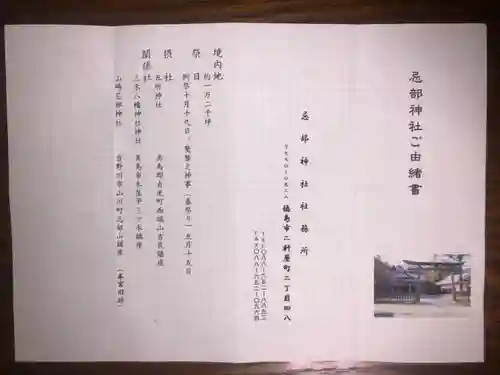 忌部神社ご由緒書
忌部神社社務所
徳島市二軒屋町二丁目四八
境内地
約一万二千坪
祭日
例祭十月十九日、
(春祭り)五月十五日
摂社
五所神社
美馬郡貞光町西端山吉良鎮座
関係社
三木八幡神社神社
美馬郡木屋平三ツ木鎮座
山崎忌部神社
吉野川市山川町忌部山鎮座